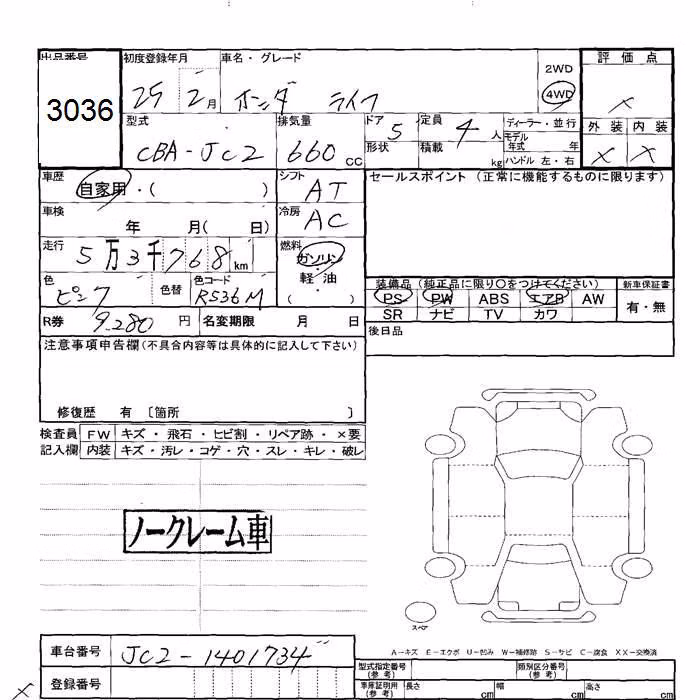 出品番号 初度登録年月 車名・グレード 評価点
3036 29年 2月 ホンダ ライフ 2WD 4WD ×
型式 排気量 ドア 5 定員 4人 ディーラー・並行 外装 内装
CBA-JC2 660CC 形状 積載 kg モデル年式 年 × ×
ハンドル 左・右
車歴 自家用・( ) シフト AT セールスポイント (正常に機能するものに限ります)
車検 年 月( 日) 冷房 AC
走行 5万3千768km 燃料 ガソリン・軽油 ( )
色 ピンク 色替 色コード R536M 装備品 (純正品に限り○をつけてください) 新車保証書
PS PW ABS エアB AW 有・無
SR ナビ TV カワ
R券 9,280円 名変期限 月 日 後日品
注意事項申告欄(不具合内容等は具体的に記入して下さい)
修復歴 有 〔箇所 〕
検査員 FW キズ・飛石・ヒビ割・リペア跡・×要
記入欄 内装 キズ・汚レ・コゲ・穴・スレ・キレ・破レ
ノークレーム車
スペア
A-キズ E-エクボ U-凹み W-補修跡 S-サビ C-腐食 XX-交換済
車台番号 JC2-1401734
型式指定番号(参考) 類別区分番号(参考)
× 登録番号 車庫証明用(参考) 長さ cm 幅 cm 高さ cm